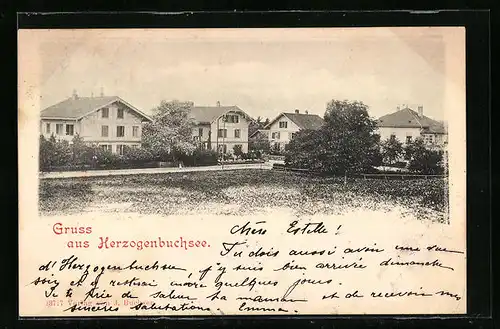 Gruss
aus Herzogenbuchsee.
Chère Estelle!
Tu dois aussi avoir une vue
d'Herzogenbuchsee, j'y suis bien arrivée dimanche
soir et y resterai encore quelques jours.
Je te prie de saluer ta maman et de recevoir mes
sincères salutations Emma.
Verlag J.